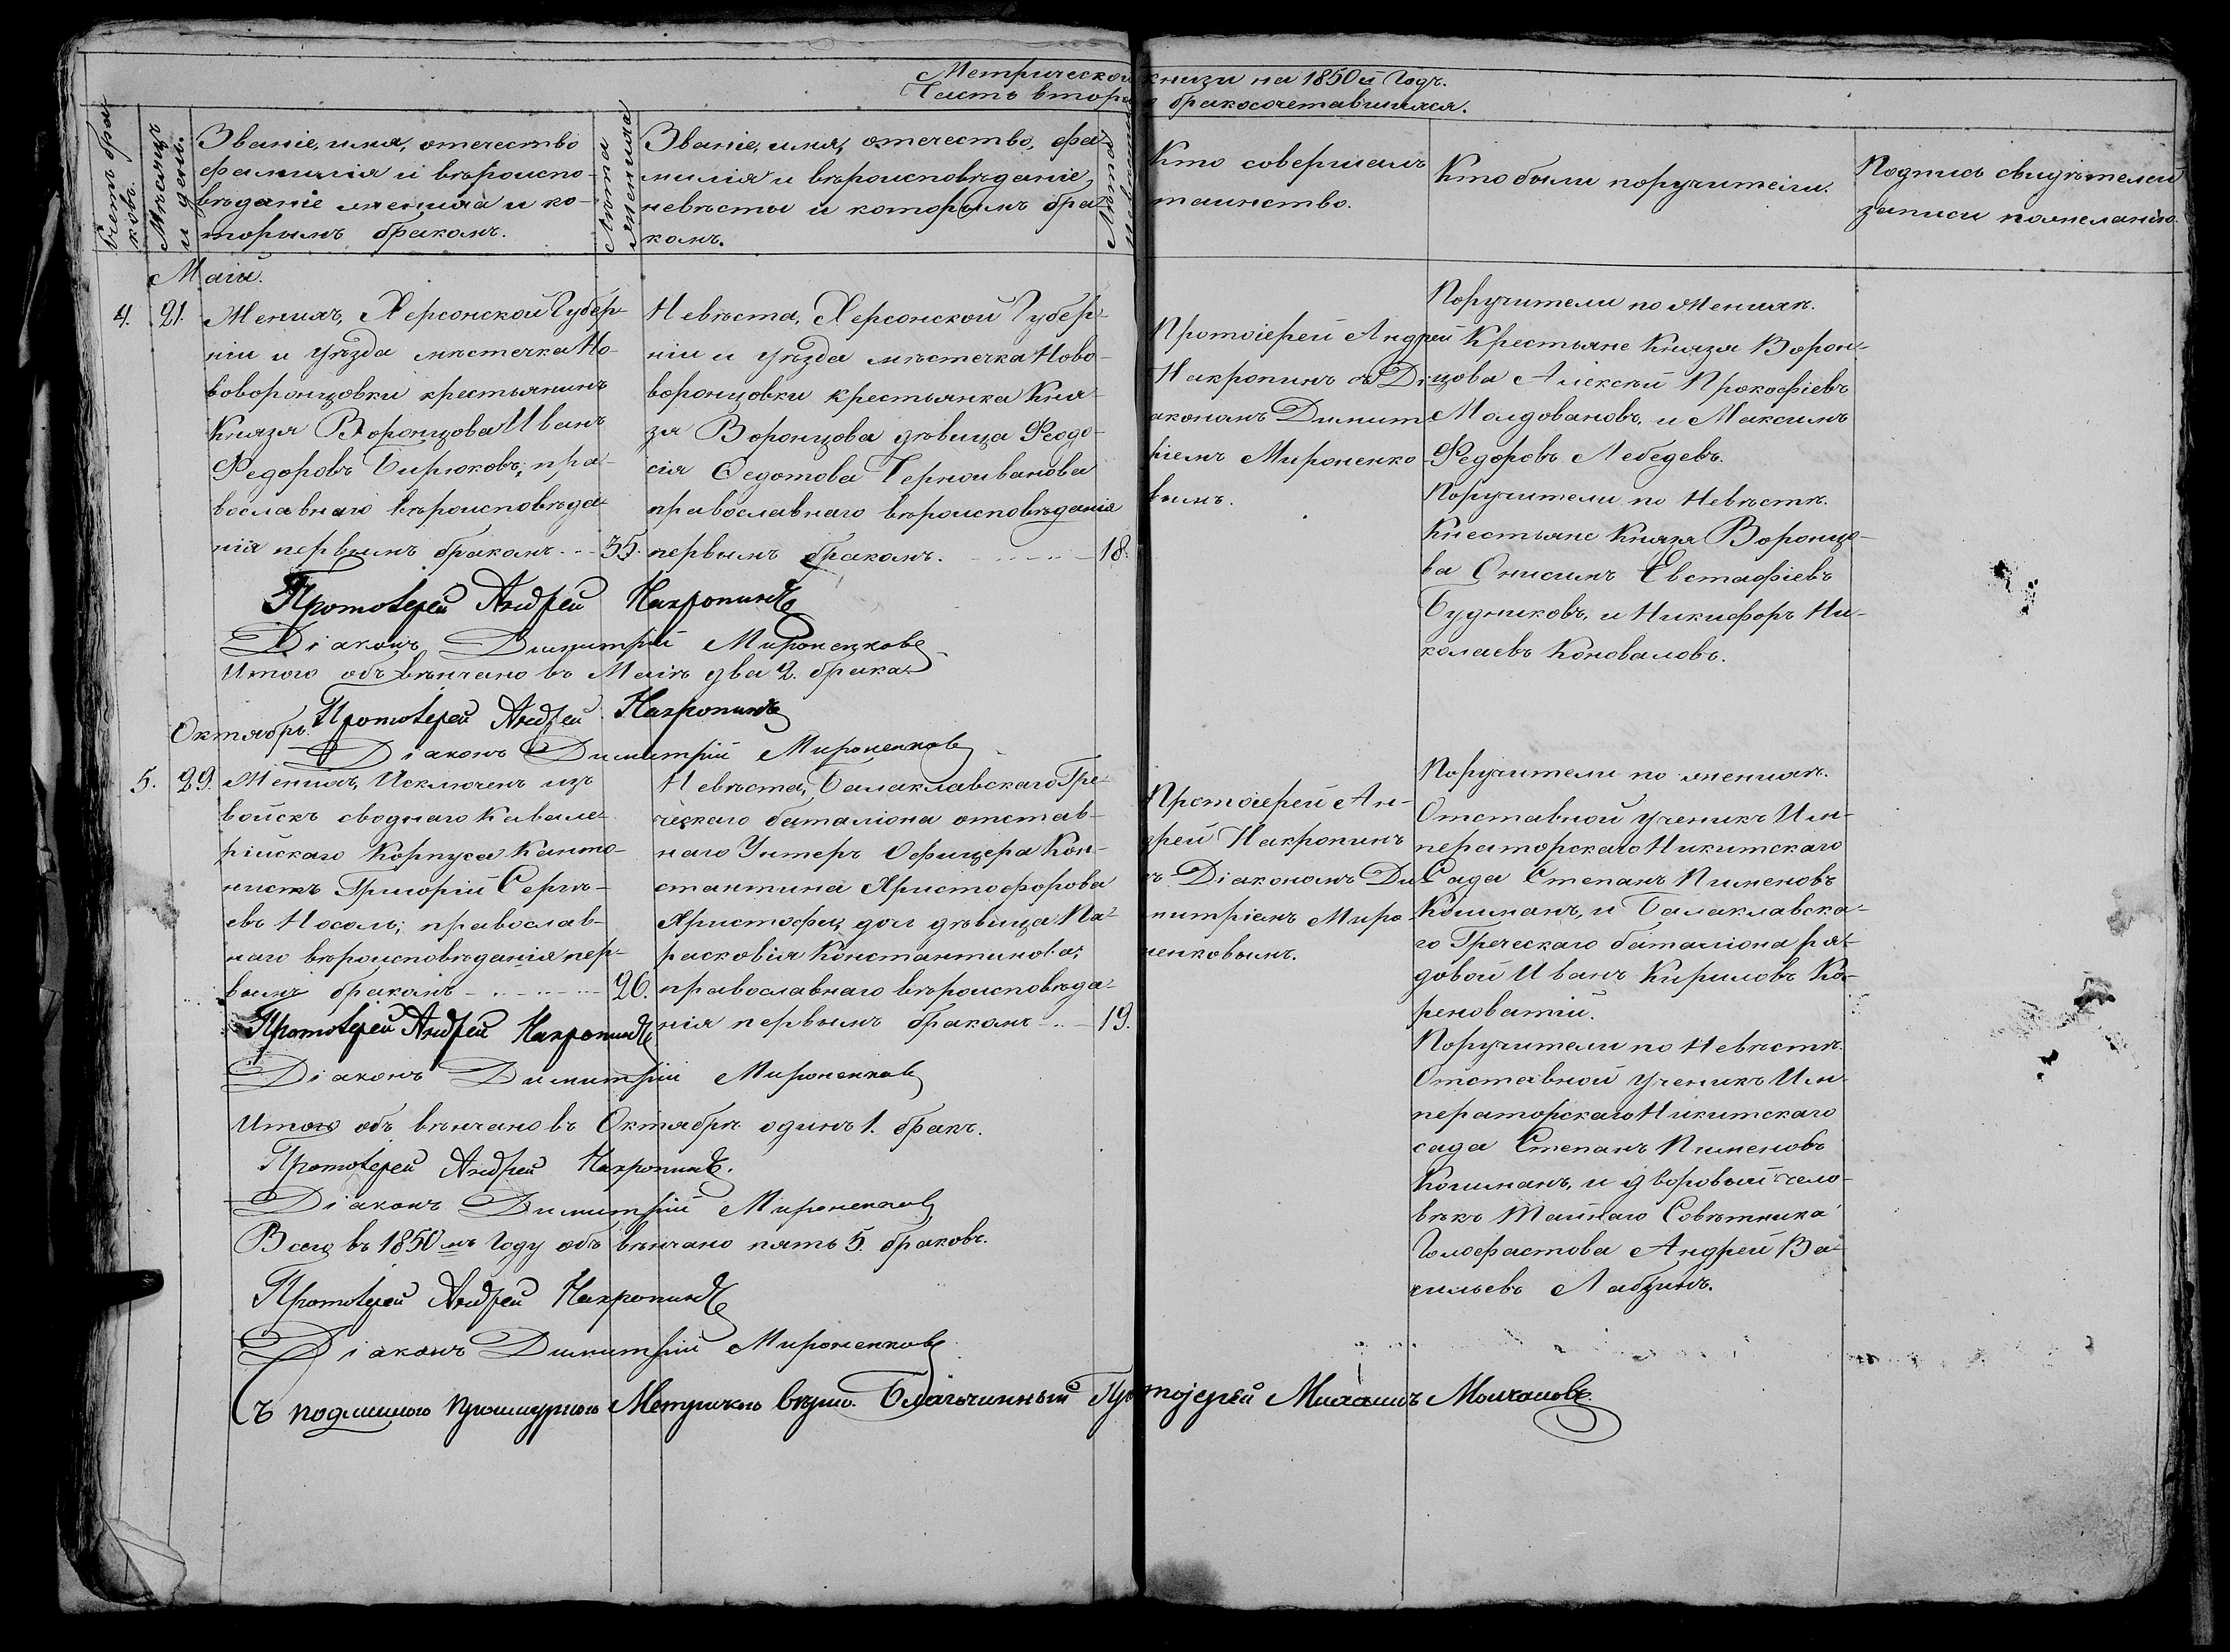 Метрической книги на 1850й Годъ.
Часть втора о бракосочетавшихся.
Счетъ бра-
ковъ.
Мѣсяцъ
и день.
Званіе, имя, отечество
фамилія и вѣроиспо-
вѣданіе жениха и ко-
торымъ бракомъ.
Лѣта
жениха
Званіе, имя, отечество, фа-
милія и вѣроисповѣданіе,
невѣсты и которымъ бра-
комъ.
Лѣта
Кто совершалъ
таинство.
Кто были поручители.
Подпись свидѣтелей
записи по желанію.
Маій.
4.
21.
Женихъ, Херсонской Губер-
ніи и уѣзда мѣстечка Но-
воворонцовки крестьянинъ
Князя Воронцова Иванъ
Федоровъ Бирюковъ, пра-
вославнаго вѣроисповѣда-
нія первымъ бракомъ
35.
Невѣста, Херсонской Губер-
ніи и уѣзда мѣстечка Ново-
воронцовки крестьянка Кня-
зя Воронцова дѣвица Феодо-
сія Федотова Черноиванова
православнаго вѣроисповѣданія
первымъ бракомъ.
18.
Протоіерей Андрей
Накропинъ съ Ді-
акономъ Димит-
ріемъ Мироненко-
вымъ.
Поручители по Женихѣ.
Крестьяне Князя Ворон-
цова Алексѣй Прокофіевъ
Молдовановъ, и Максимъ
Федоровъ Лебедевъ.
Поручители по Невѣстѣ.
Кнестьяне Князя Воронцо-
ва Онисимъ Евстафіевъ
Будниковъ, и Никифоръ Ни-
колаевъ Коноваловъ.
Протоіерей Андрей Накропинъ
Діаконъ Димитрій Мироненковъ
Итого объ вѣнчано въ Маіѣ два 2. брака.
Протоіерей Андрей Накропинъ
Октябрь.
Діаконъ Димитрій Мироненковъ
5.
29.
Женихъ, Исключенъ изъ
войскъ своднаго Кавале-
рійскаго Корпуса Канто-
нистъ Григорій Сергѣ-
евъ Носоль; православ-
наго вѣроисповѣданія пер-
вымъ бракомъ
26.
Невѣста, Балаклавскаго Гре-
ческаго баталіона отстав-
наго Унтеръ Офицера Кон-
стантина Христофорова
Христофи, дочь дѣвица Па-
расковія Константинова,
православнаго вѣроисповѣда-
нія первымъ бракомъ
19.
Протоіерей Ан-
дрей Накропинъ
съ Діакономъ Ди-
митріемъ Миро-
ненковымъ.
Поручители по женихѣ.
Отставной ученикъ Им-
ператорскаго Никитскаго
Сада Степанъ Пименовъ
Кошманъ, и Балаклавска-
го Греческаго баталіона ря-
довой Иванъ Кириловъ Ко-
реноватій.
Поручители по Невѣстѣ.
Отставной ученикъ Им-
ператорскаго Никитскаго
сада Степанъ Пименовъ
Кошманъ, и дворовый чело-
вѣкъ Тайнаго Совѣтника
Голофастова Андрей Ва-
сильевъ Лабзинъ.
Протоіерей Андрей Накропинъ
Діаконъ Димитрій Мироненковъ
Итого объ вѣнчано въ Октябрѣ одинъ 1. бракъ.
Протоіерей Андрей Накропинъ.
Діаконъ Димитрій Мироненковъ
Всего въ 1850мъ Году объ вѣнчано пять 5. браковъ.
Протоіерей Андрей Накропинъ
Діаконъ Димитрій Мироненковъ
Съ подлинною Метрическою вѣрно. Благочинный Протоіерей Михаилъ